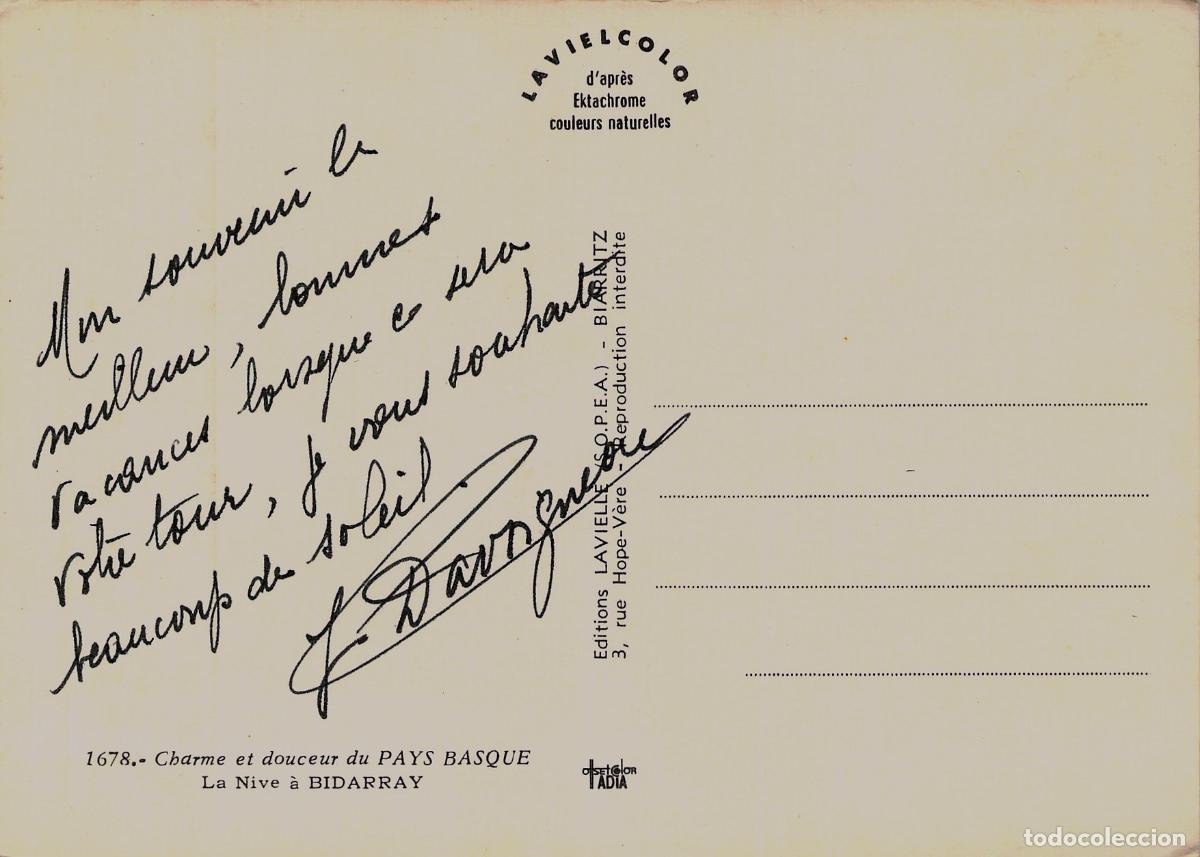 LAVIELCOLOR
d'après
Ektachrome
couleurs naturelles
Mon souvenir le
meilleur, bonnes
vacances lorsque ce sera
votre tour, je vous souhaite
beaucoup de soleil
J. Davoigneau
Editions LAVIELLE (S.O.P.E.A.) - BIARRITZ
3, rue Hope-Vère - Reproduction interdite
1678.- Charme et douceur du PAYS BASQUE
La Nive à BIDARRAY
OFFSETCOLOR
ADIA
todocoleccion